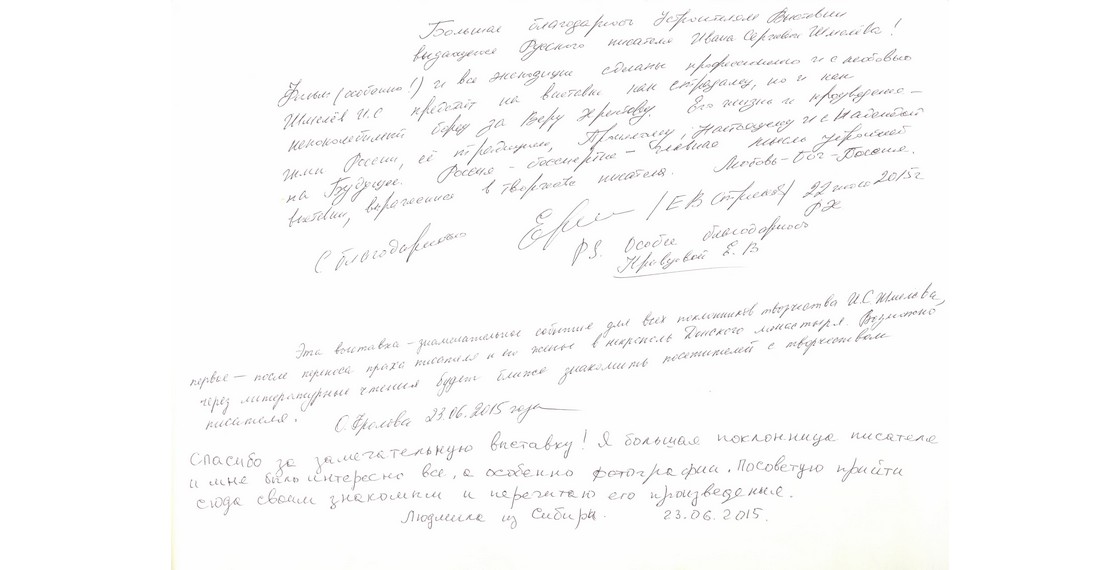 Большая благодарность Устроителям Выставки
выдающегося Русского писателя Ивана Сергеевича Шмелёва!
Фильм (особенно!) и вся экспозиция сделаны профессионально и с любовью
Шмелёв И.С предстаёт на выставке как страдалец, но и как
непоколебимый борец за Веру Христову. Его жизнь и произведе-
гимн России, её традициям, Прошлому, Настоящему и с Надеждой
на Будущее. Россия - бессмертна - главная мысль устроителей
выставки, выраженная в творчестве писателя. Любовь-Бог-Россия.
С благодарностью /Е В / 22 2015г
РХ
PS. Особая благодарность
Кравцовой Е. В
Эта выставка - знаменательное событие для всех поклонников творчества И.С. Шмелёва,
первое - после переноса праха писателя и его жены в некрополь Донского монастыря. Возможно
через литературные чтения будет ближе знакомить посетителей с творчеством
писателя. О. Фролова 23.06.2015 года
Спасибо за замечательную выставку! Я большая поклонница писателя
и мне было интересно все, а особенно фотографии. Посоветую прийти
сюда своим знакомым и перечитаю его произведения.
Людмила из Сибири. 23.06.2015.